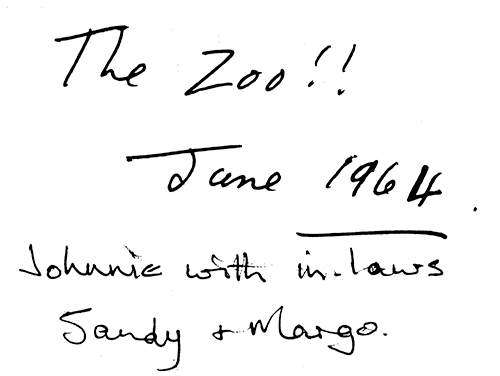 The Zoo!!
June 1964.
Johnnie with in-laws
Sandy + Margo.